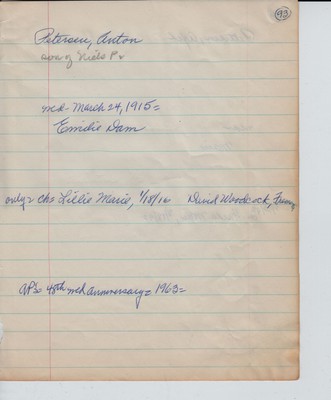 93
Petersen, Anton
Niels P
md - March 24, 1915 =
Emilie Dam
only ch = Lillie Marie, 1/18/16 David Woodcock,
AP's 48th md anniversary = 1963 =